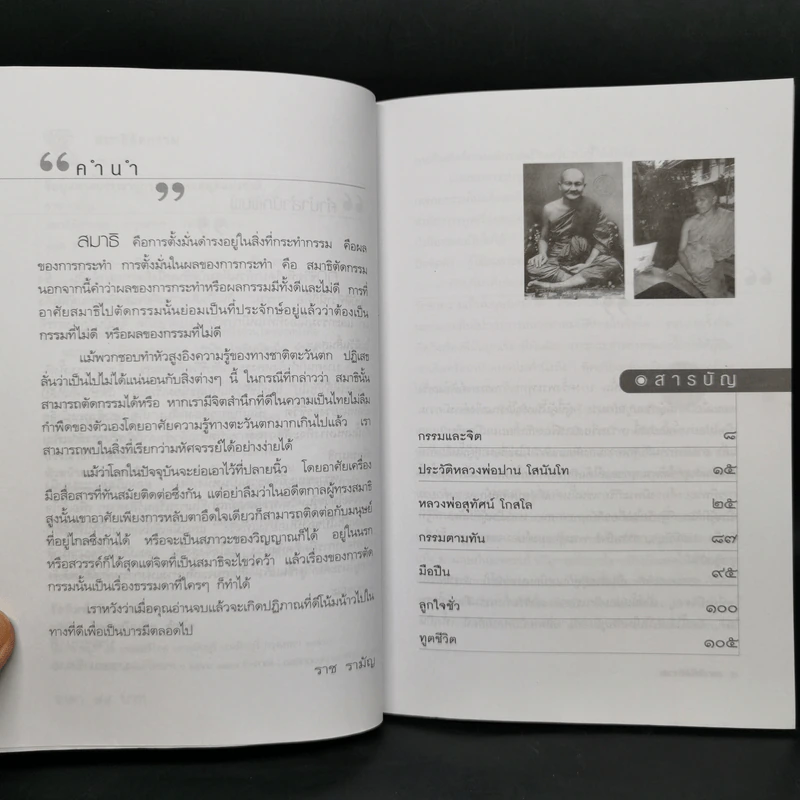 “ คำนำ ”
สมาธิ คือการตั้งมั่นดำรงอยู่ในสิ่งที่กระทำกรรม คือผล
ของการกระทำ การตั้งมั่นในผลของการกระทำ คือ สมาธิตัดกรรม
นอกจากนี้คำว่าผลของการกระทำหรือผลกรรมมีทั้งดีและไม่ดี การที่
อาศัยสมาธิไปตัดกรรมนั้นย่อมเป็นที่ประจักษ์อยู่แล้วว่าต้องเป็น
กรรมที่ไม่ดี หรือผลของกรรมที่ไม่ดี
แม้พวกชอบทำหัวสูงอิงความรู้ของทางชาติตะวันตก ปฏิเสธ
ลั่นว่าเป็นไปไม่ได้แน่นอนกับสิ่งต่างๆ นี้ ในกรณีที่กล่าวว่า สมาธินั้น
สามารถตัดกรรมได้หรือ หากเรามีจิตสำนึกที่ดีในความเป็นไทยไม่ลืม
กำพืดของตัวเองโดยอาศัยความรู้ทางตะวันตกมากเกินไปแล้ว เรา
สามารถพบในสิ่งที่เรียกว่ามหัศจรรย์ได้อย่างง่ายได้
แม้ว่าโลกในปัจจุบันจะย่อเอาไว้ที่ปลายนิ้ว โดยอาศัยเครื่อง
มือสื่อสารที่ทันสมัยติดต่อซึ่งกัน แต่อย่าลืมว่าในอดีตกาลผู้ทรงสมาธิ
สูงนั้นเขาอาศัยเพียงการหลับตาอึดใจเดียวก็สามารถติดต่อกับมนุษย์
ที่อยู่ไกลซึ่งกันได้ หรือจะเป็นสภาวะของวิญญาณก็ได้ อยู่ในนรก
หรือสวรรค์ก็ได้สุดแต่จิตที่เป็นสมาธิจะไขว่คว้า แล้วเรื่องของการตัด
กรรมนั้นเป็นเรื่องธรรมดาที่ใครๆ ก็ทำได้
เราหวังว่าเมื่อคุณอ่านจบแล้วจะเกิดปฏิภาณที่ดีโน้มน้าวไปใน
ทางที่ดีเพื่อเป็นบารมีตลอดไป
ราช รามัญ
สารบัญ
กรรมและจิต ๘
ประวัติหลวงพ่อปาน โสนันโท ๑๕
หลวงพ่อสุทัศน์ โกสโล ๒๕
กรรมตามทัน ๘๗
มือปืน ๙๕
ลูกใจชั่ว ๑๐๐
ทูตชีวิต ๑๐๕